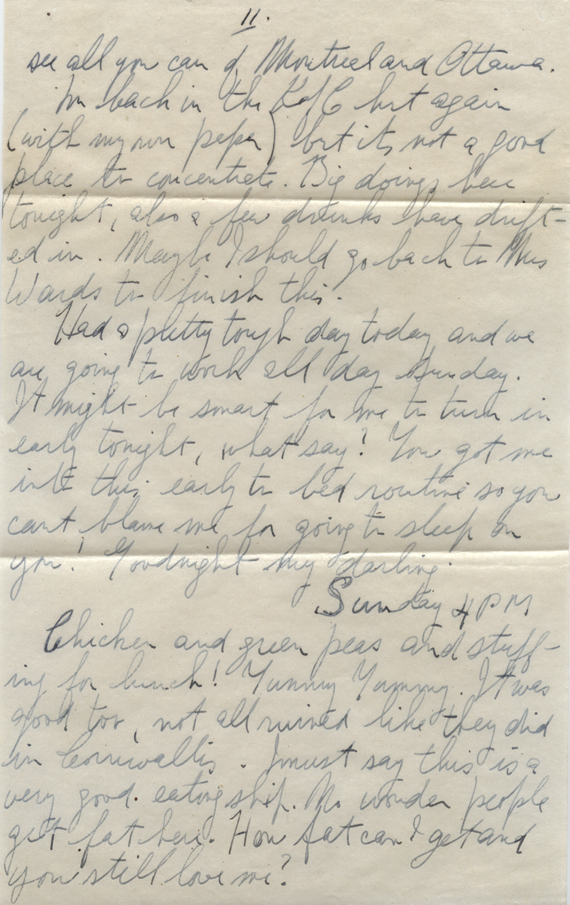 11.
see all you can of Montreal and Ottawa.
Im back in the K of C hut again
(with my own paper) but its not a good
place to concentrate. Big doings here
tonight, also a few drunks have drift-
ed in. Maybe I should go back to Mrs
Wards to finish this.
Had a pretty tough day today and we
are going to work all day Sunday.
It might be smart for me to turn in
early tonight, what say? You got me
into this early to bed routine so you
cant blame me for going to sleep on
you! Goodnight my darling.
Sunday 4 PM
Chicken and green peas and stuff-
ing for lunch! Yummy Yummy. It was
good too, not all ruined like they did
in Cornwallis. I must say this is a
very good eating ship. No wonder people
get fat here. How fat can I get and
you still love me?